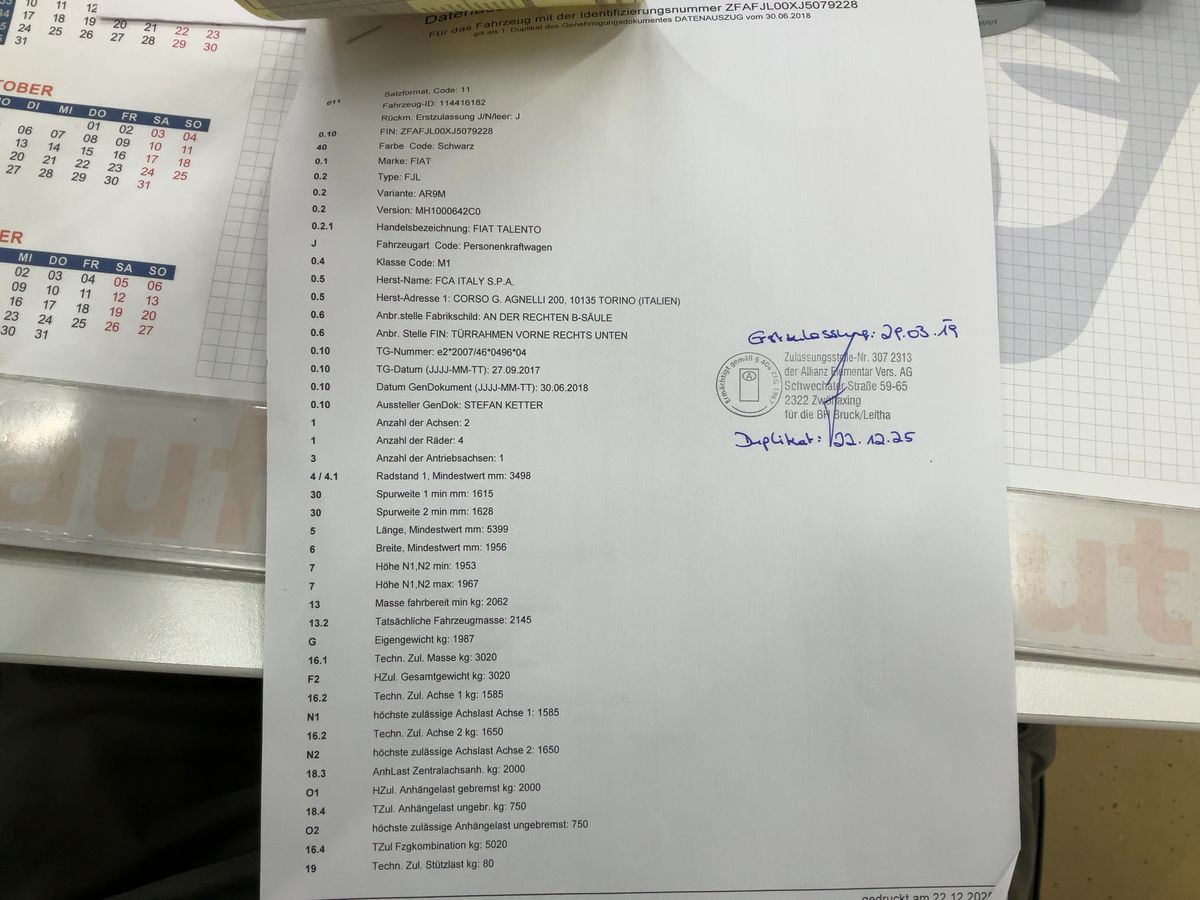 Für das Fahrzeug mit der Identifizierungsnummer ZFAFJL00XJ5079228
gilt als 1. Duplikat des Genehmigungsdokumentes DATENAUSZUG vom 30.06.2018
Satzformat, Code: 11
011 Fahrzeug-ID: 114416182
Rückm. Erstzulassung J/N/leer: J
0.10 FIN: ZFAFJL00XJ5079228
40 Farbe Code: Schwarz
0.1 Marke: FIAT
0.2 Type: FJL
0.2 Variante: AR9M
0.2 Version: MH1000642C0
0.2.1 Handelsbezeichnung: FIAT TALENTO
J Fahrzeugart Code: Personenkraftwagen
0.4 Klasse Code: M1
0.5 Herst-Name: FCA ITALY S.P.A.
0.5 Herst-Adresse 1: CORSO G. AGNELLI 200, 10135 TORINO (ITALIEN)
0.6 Anbr.stelle Fabrikschild: AN DER RECHTEN B-SÄULE
0.6 Anbr. Stelle FIN: TÜRRAHMEN VORNE RECHTS UNTEN
0.10 TG-Nummer: e2*2007/46*0496*04
0.10 TG-Datum (JJJJ-MM-TT): 27.09.2017
0.10 Datum GenDokument (JJJJ-MM-TT): 30.06.2018
0.10 Aussteller GenDok: STEFAN KETTER
1 Anzahl der Achsen: 2
1 Anzahl der Räder: 4
3 Anzahl der Antriebsachsen: 1
4 / 4.1 Radstand 1, Mindestwert mm: 3498
30 Spurweite 1 min mm: 1615
30 Spurweite 2 min mm: 1628
5 Länge, Mindestwert mm: 5399
6 Breite, Mindestwert mm: 1956
7 Höhe N1,N2 min: 1953
7 Höhe N1,N2 max: 1967
13 Masse fahrbereit min kg: 2062
13.2 Tatsächliche Fahrzeugmasse: 2145
G Eigengewicht kg: 1987
16.1 Techn. Zul. Masse kg: 3020
F2 HZul. Gesamtgewicht kg: 3020
16.2 Techn. Zul. Achse 1 kg: 1585
N1 höchste zulässige Achslast Achse 1: 1585
16.2 Techn. Zul. Achse 2 kg: 1650
N2 höchste zulässige Achslast Achse 2: 1650
18.3 AnhLast Zentralachsanh. kg: 2000
O1 HZul. Anhängelast gebremst kg: 2000
18.4 TZul. Anhängelast ungebr. kg: 750
O2 höchste zulässige Anhängelast ungebremst: 750
16.4 TZul Fzgkombination kg: 5020
19 Techn. Zul. Stützlast kg: 80
gedruckt am 22.12.202
Erstzulassung: 29.03.19
Ermächtigt gemäß § 40a KFG 1967
A
Zulassungsstelle-Nr. 307 2313
der Allianz Elementar Vers. AG
Schwechater Straße 59-65
2322 Zwölfaxing
für die BH Bruck/Leitha
Duplikat: 22.12.25
10 11 12
17 18 19 20 21 22 23
24 25 26 27 28 29 30
31
TOBER
DI MI DO FR SA SO
01 02 03 04
06 07 08 09 10 11
13 14 15 16 17 18
20 21 22 23 24 25
27 28 29 30 31
ER
MI DO FR SA SO
02 03 04 05 06
09 10 11 12 13
16 17 18 19 20
23 24 25 26 27
30 31
auf
ut